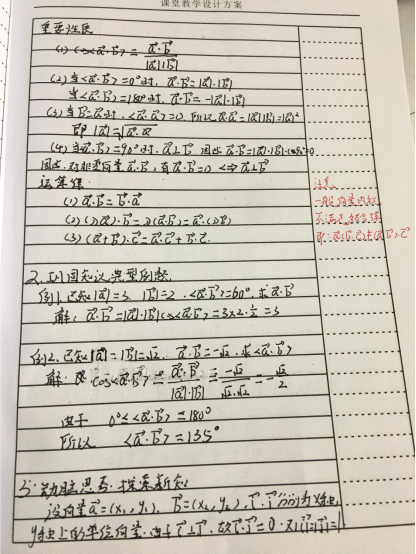 课堂教学设计方案
重要性质
(1) cos<a⃗·b⃗> = a⃗·b⃗ / |a⃗||b⃗|
(2) 当<a⃗·b⃗>=0°时, a⃗·b⃗=|a⃗|·|b⃗|
当<a⃗·b⃗>=180°时, a⃗·b⃗=-|a⃗|·|b⃗|
(3) 当b⃗=a⃗时, <a⃗·a⃗>=0, 所以a⃗·a⃗=|a⃗||a⃗|=|a⃗|²
即 |a⃗|=√a⃗·a⃗
(4) 当<a⃗·b⃗>=90°时, a⃗⊥b⃗, 因此 a⃗·b⃗=|a⃗|·|b⃗|·cos90°=0
因此对非零向量a⃗·b⃗, 有a⃗·b⃗=0 ⇔ a⃗⊥b⃗
运算律
(1) a⃗·b⃗=b⃗·a⃗
(2) (λa⃗)·b⃗=λ(a⃗·b⃗)=a⃗·(λb⃗)
(3) (a⃗+b⃗)·c⃗=a⃗·c⃗+b⃗·c⃗
注意
一般向量的数
不满足结合律
即: a⃗·(b⃗·c⃗)≠(a⃗·b⃗)·c⃗
2、巩固知识 典型例题
例1. 已知|a⃗|=3, |b⃗|=2, <a⃗·b⃗>=60°, 求a⃗·b⃗
解: a⃗·b⃗=|a⃗|·|b⃗|cos<a⃗·b⃗>=3×2×½=3
例2. 已知|a⃗|=|b⃗|=√2, a⃗·b⃗=-√2, 求<a⃗·b⃗>
解: cos<a⃗·b⃗> = a⃗·b⃗ / |a⃗|·|b⃗| = -√2 / √2·√2 = -√2/2
由于 0°≤<a⃗·b⃗>≤180°
所以 <a⃗·b⃗>=135°
3、动脑思考 探索新知
设向量a⃗=(x₁,y₁), b⃗=(x₂,y₂), i⃗, j⃗分别为x轴,
y轴上的单位向量, 由于i⃗⊥j⃗, 故i⃗·j⃗=0, 又|i⃗|=|j⃗|=1